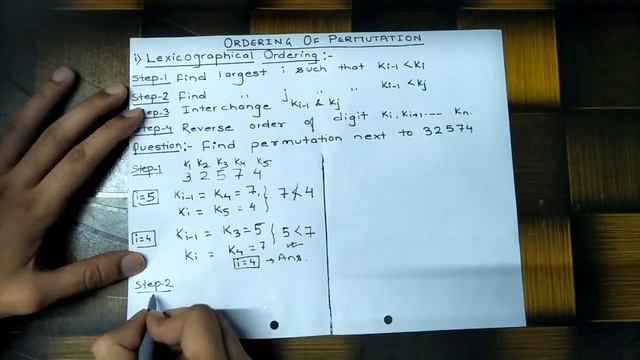 ORDERING OF PERMUTATION
i) Lexicographical Ordering :-
Step-1 Find largest i such that Ki-1 < Ki
Step-2 Find " j " " Ki-1 < Kj
Step-3 Interchange Ki-1 & Kj
Step-4 Reverse order of digit Ki, Ki+1 ---- Kn.
Question:- Find permutation next to 32574
Step-1 K1 K2 K3 K4 K5
3 2 5 7 4
i=5 Ki-1 = K4 = 7, } 7 ≮ 4
Ki = K5 = 4
i=4 Ki-1 = K3 = 5 } 5 < 7
Ki = K4 = 7
i=4 → Ans.
Step-2